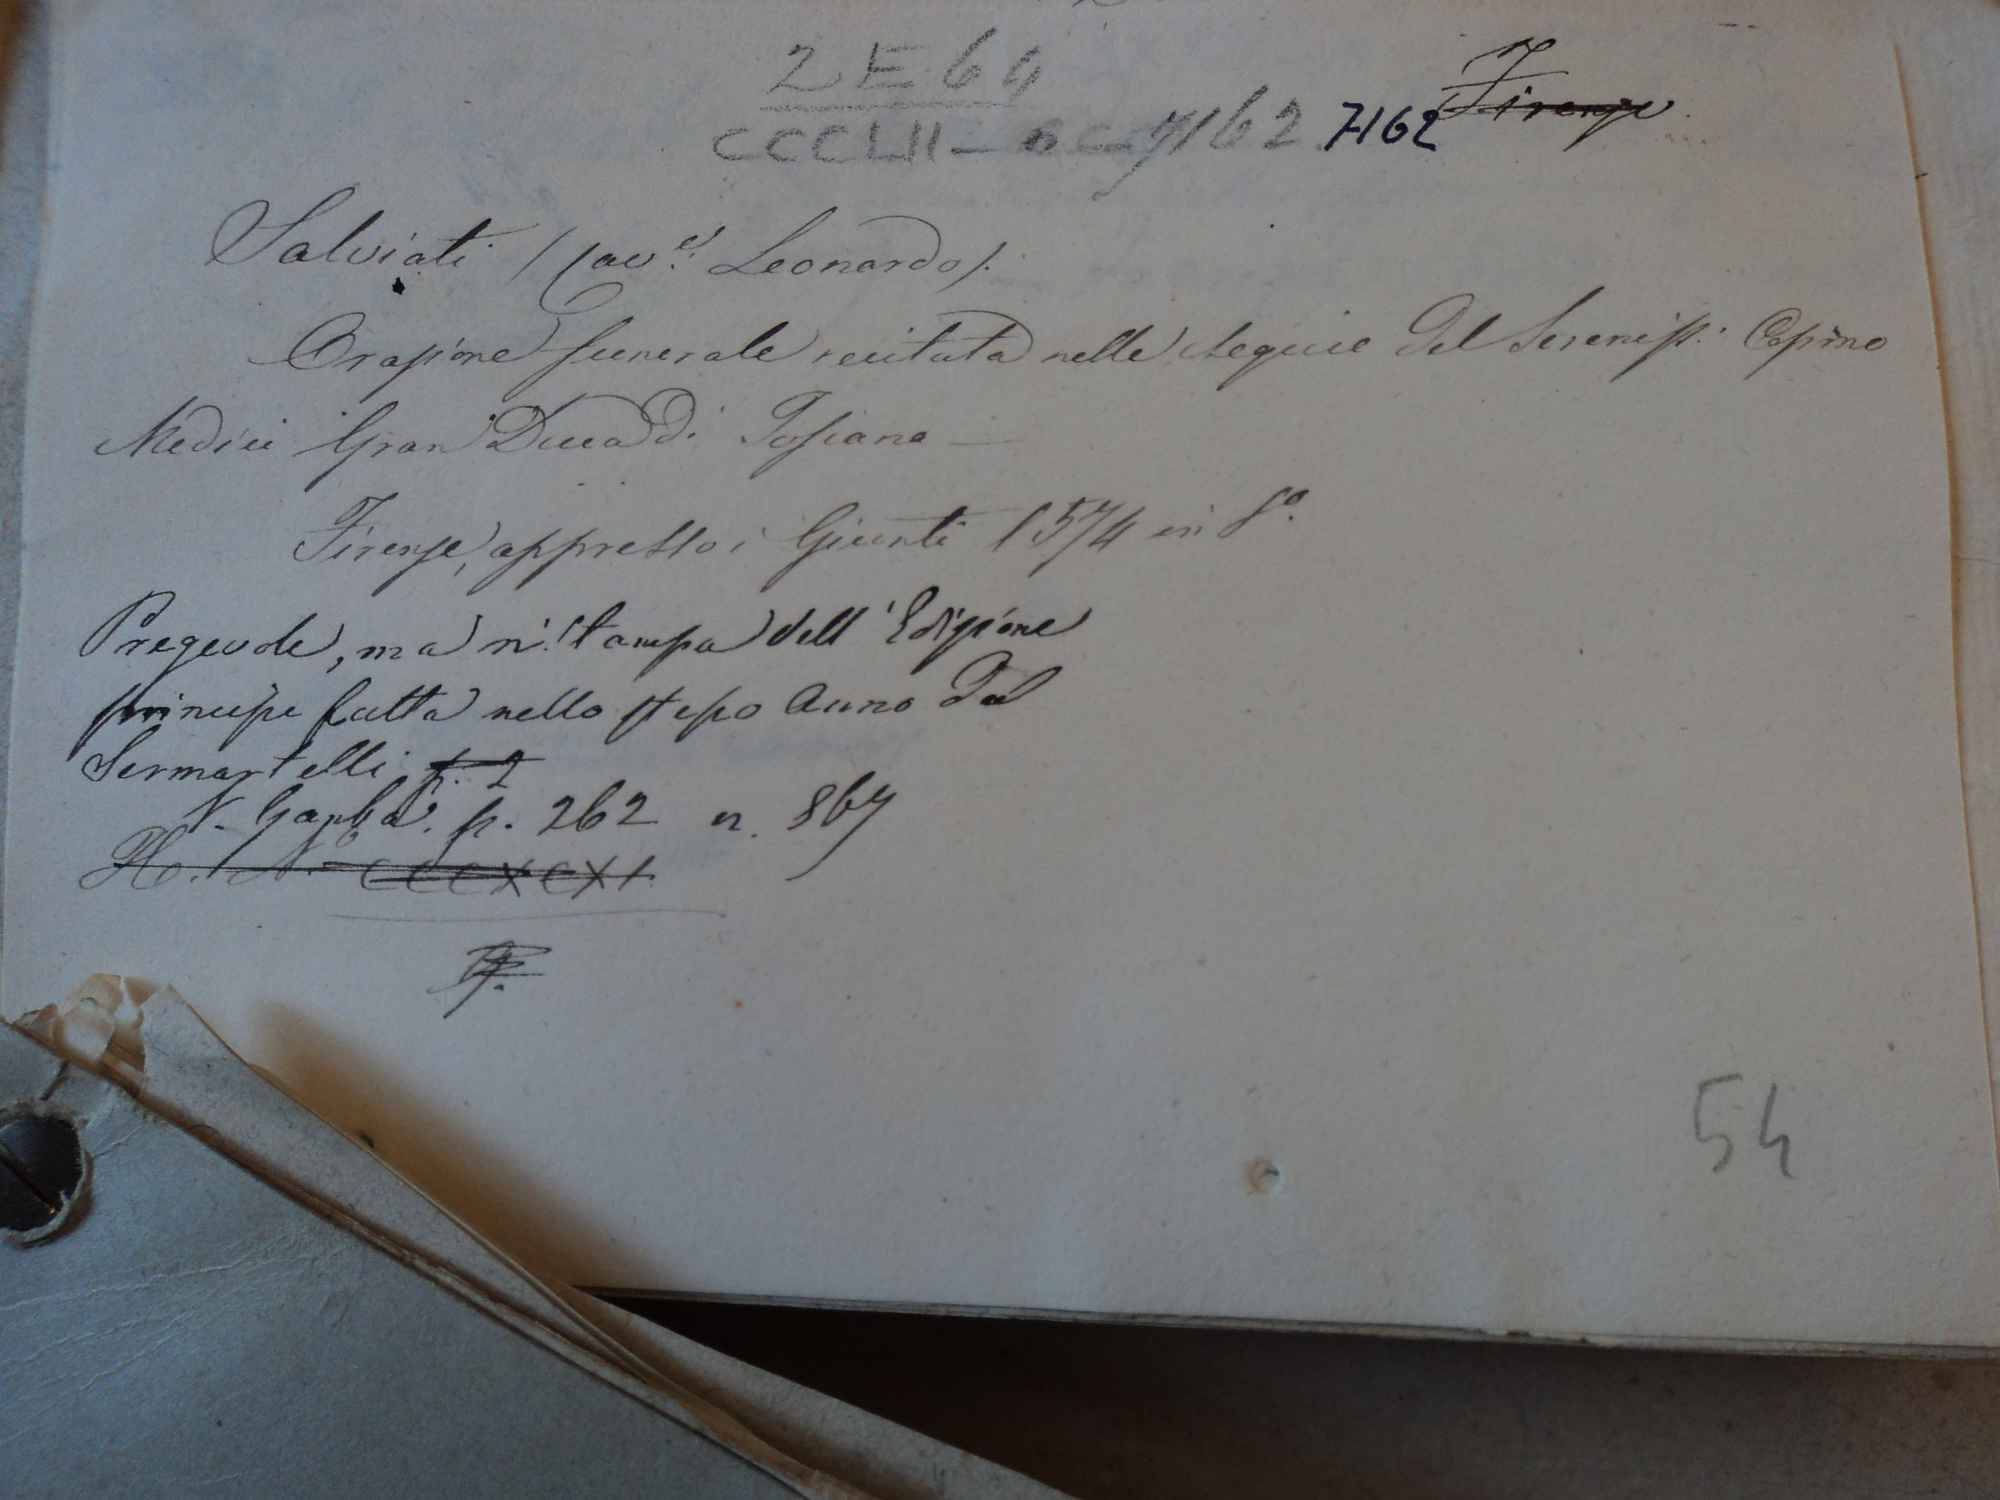 2 E 64
Firenze
CCCLII - C 7162 7162
Salviati (Cav.e Leonardo).
Orazione funerale recitata nelle esequie del Sereniss. Cosimo
Medici Gran Duca di Toscana —
Firenze, appresso i Giunti 1574 in 8.o
Pregevole, ma ristampa dell'Edizione
principe fatta nello stesso anno dal
Sermartelli p. 2
V. Gamba. p. 262 n. 867
H. N. CCCXCXI.
54